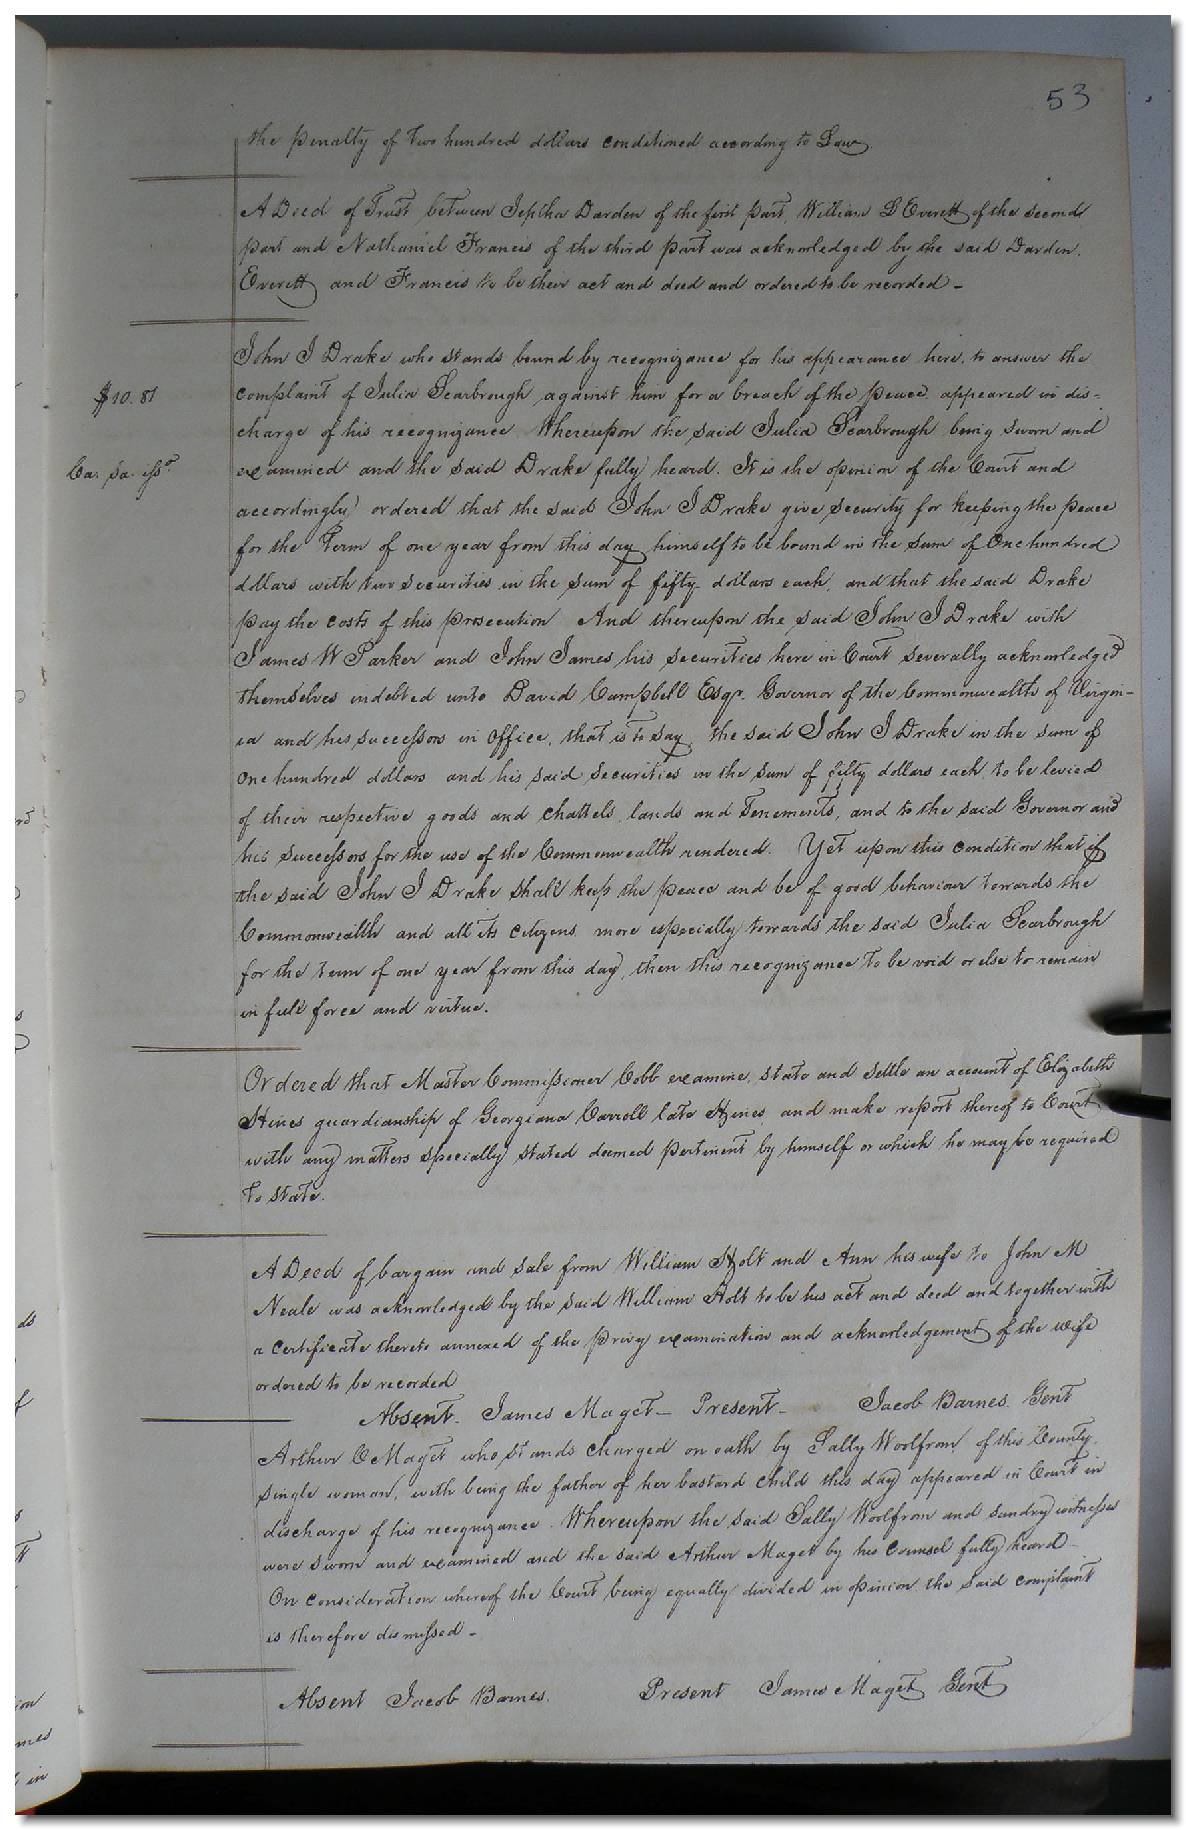 53
the penalty of two hundred dollars conditioned according to Law
A Deed of Trust between Jeptha Darden of the first part, William D Everett of the second
part and Nathaniel Francis of the third part was acknowledged by the said Darden,
Everett and Francis to be their act and deed and ordered to be recorded -
John J Drake who stands bound by recognizance for his appearance here, to answer the
$10.81
complaint of Julia Scarbrough against him for a breach of the peace appeared in dis-
charge of his recognizance Whereupon the said Julia Scarbrough being sworn and
Ca. Sa. issd.
examined and the said Drake fully heard. It is the opinion of the Court and
accordingly ordered that the said John J Drake give security for keeping the peace
for the Term of one year from this day himself to be bound in the sum of One hundred
dollars with two securities in the sum of fifty dollars each, and that the said Drake
pay the costs of this prosecution And thereupon the said John J Drake with
James W Parker and John James his securities here in Court severally acknowledged
themselves indebted unto David Campbell Esqr. Governor of the Commonwealth of Virgin-
ia and his successors in Office, that is to say, the said John J Drake in the sum of
One hundred dollars and his said securities in the sum of fifty dollars each, to be levied
of their respective goods and chattels, lands and Tenements, and to the said Governor and
his successors for the use of the Commonwealth rendered. Yet upon this condition that if
the said John J Drake shall keep the peace and be of good behaviour towards the
Commonwealth and all its citizens more especially towards the said Julia Scarbrough
for the term of one year from this day, then this recognizance to be void or else to remain
in full force and virtue.
Ordered that Master Commissioner Cobb examine, state and settle an account of Elizabeth
Hines guardianship of Georgiana Carroll late Hines and make report thereof to Court
with any matters specially stated deemed pertinent by himself or which he may be required
to state.
A Deed of bargain and sale from William Holt and Ann his wife to John M
Neale was acknowledged by the said William Holt to be his act and deed and together with
a certificate thereto annexed of the privy examination and acknowledgement of the wife
ordered to be recorded
Absent. James Maget - Present - Jacob Barnes. Gent
Arthur C Maget who stands charged on oath by Sally Woolfrom of this County,
single woman, with being the father of her bastard child this day appeared in Court in
discharge of his recognizance. Whereupon the said Sally Woolfrom and sundry witnesses
were sworn and examined and the said Arthur Maget by his counsel fully heard -
On consideration whereof the Court being equally divided in opinion the said complaint
is therefore dismissed -
Absent Jacob Barnes. Present James Maget Gent